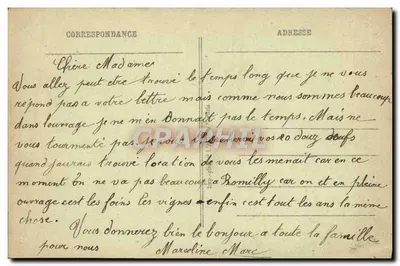 CORRESPONDANCE ADRESSE
Chère Madame
Vous allez peut etre trouvé le temps long que je ne vous
repond pas a votre lettre mais comme nous sommes beaucoup
dans l'ouvrage je ne m'en donnait pas le temps. Mais ne
vous tourmenté pas je vos douz œufs
quand jourais trouvé location de vous les menait car en ce
moment on ne va pas beaucoup a Romilly car on et en pleine
ouvrage sest les foins les vignes enfin cest tout les ans la mème
chose.
Vous donnerez bien le bonjour a toute la famille
pour nous Marceline Marc